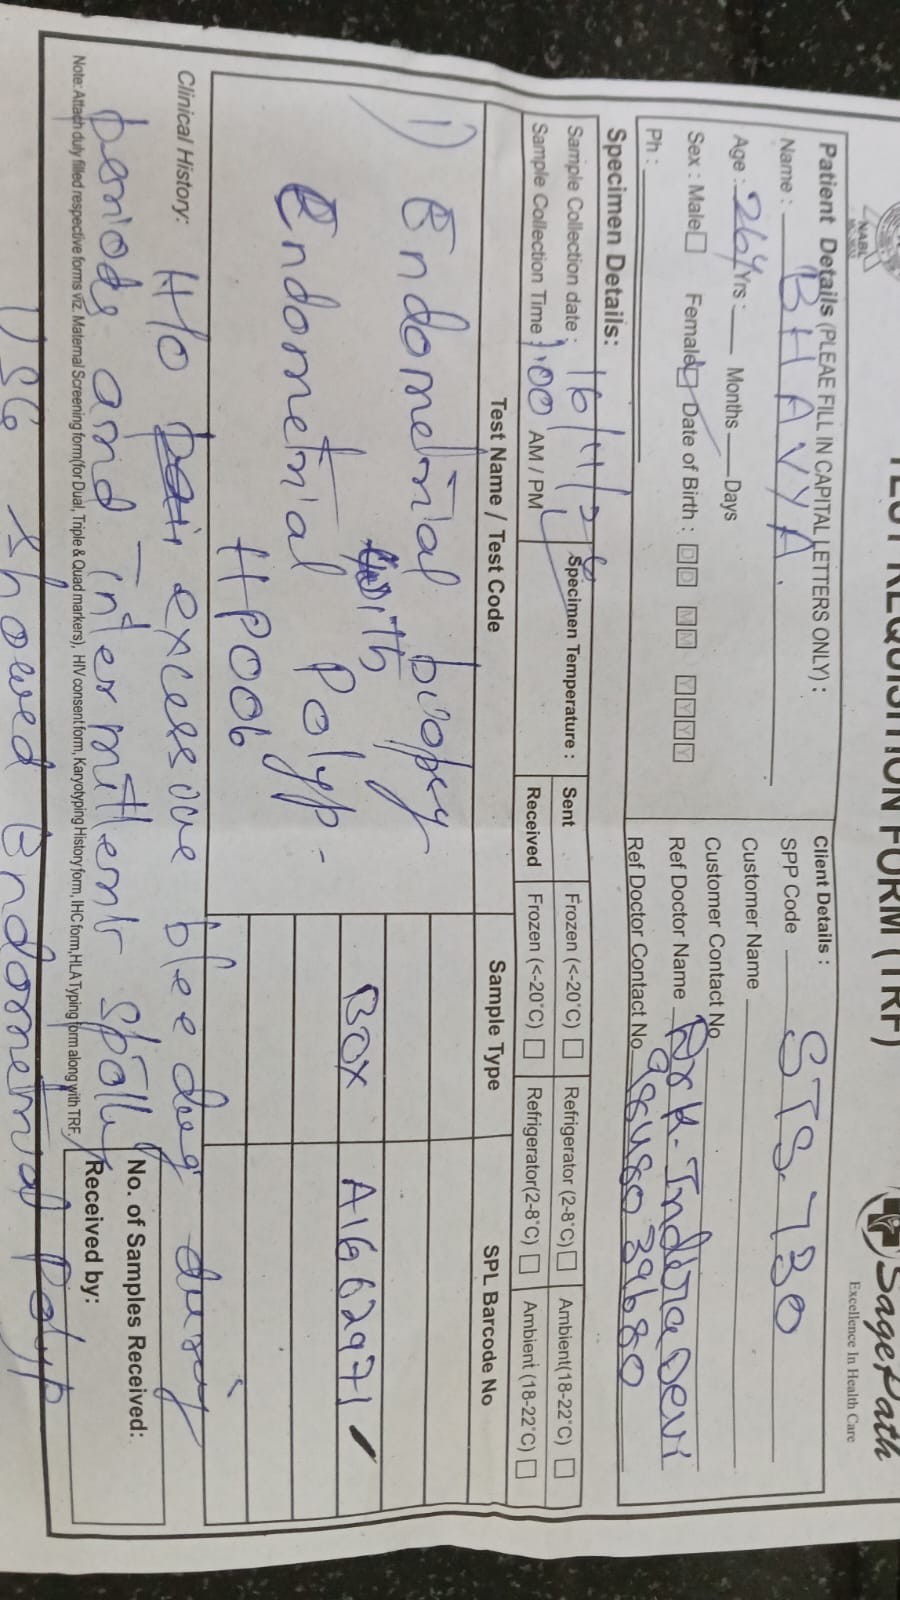 TEST REQUISITION FORM (TRF)
SagePath
Excellence In Health Care
NABL
Patient Details (PLEAE FILL IN CAPITAL LETTERS ONLY) :
Name : BHAVYA.
Age : 26y Yrs : Months Days
Sex : Male Female Date of Birth : D D M M Y Y Y Y
Ph :
Client Details :
SPP Code STS. 730
Customer Name
Customer Contact No
Ref Doctor Name Dr K. Indira Devi
Ref Doctor Contact No
Specimen Details:
Sample Collection date :
Sample Collection Time : 1:00 AM / PM
Specimen Temperature :
Sent Frozen (<-20°C) Refrigerator (2-8°C) Ambient(18-22°C)
Received Frozen (<-20°C) Refrigerator(2-8°C) Ambient (18-22°C)
Test Name / Test Code Sample Type SPL Barcode No
1) Endometrial biopsy
with
Endometrial Polyp - Box A1662971
HP006
Clinical History: H/o excessive bleeding during
periods and intermittent spotting
No. of Samples Received:
Received by:
Note: Attach duly filled respective forms viz. Maternal Screening form(for Dual, Triple & Quad markers), HIV consent form, Karyotyping History form, IHC form, HLA Typing form along with TRF.
USG showed Endometrial Polyp